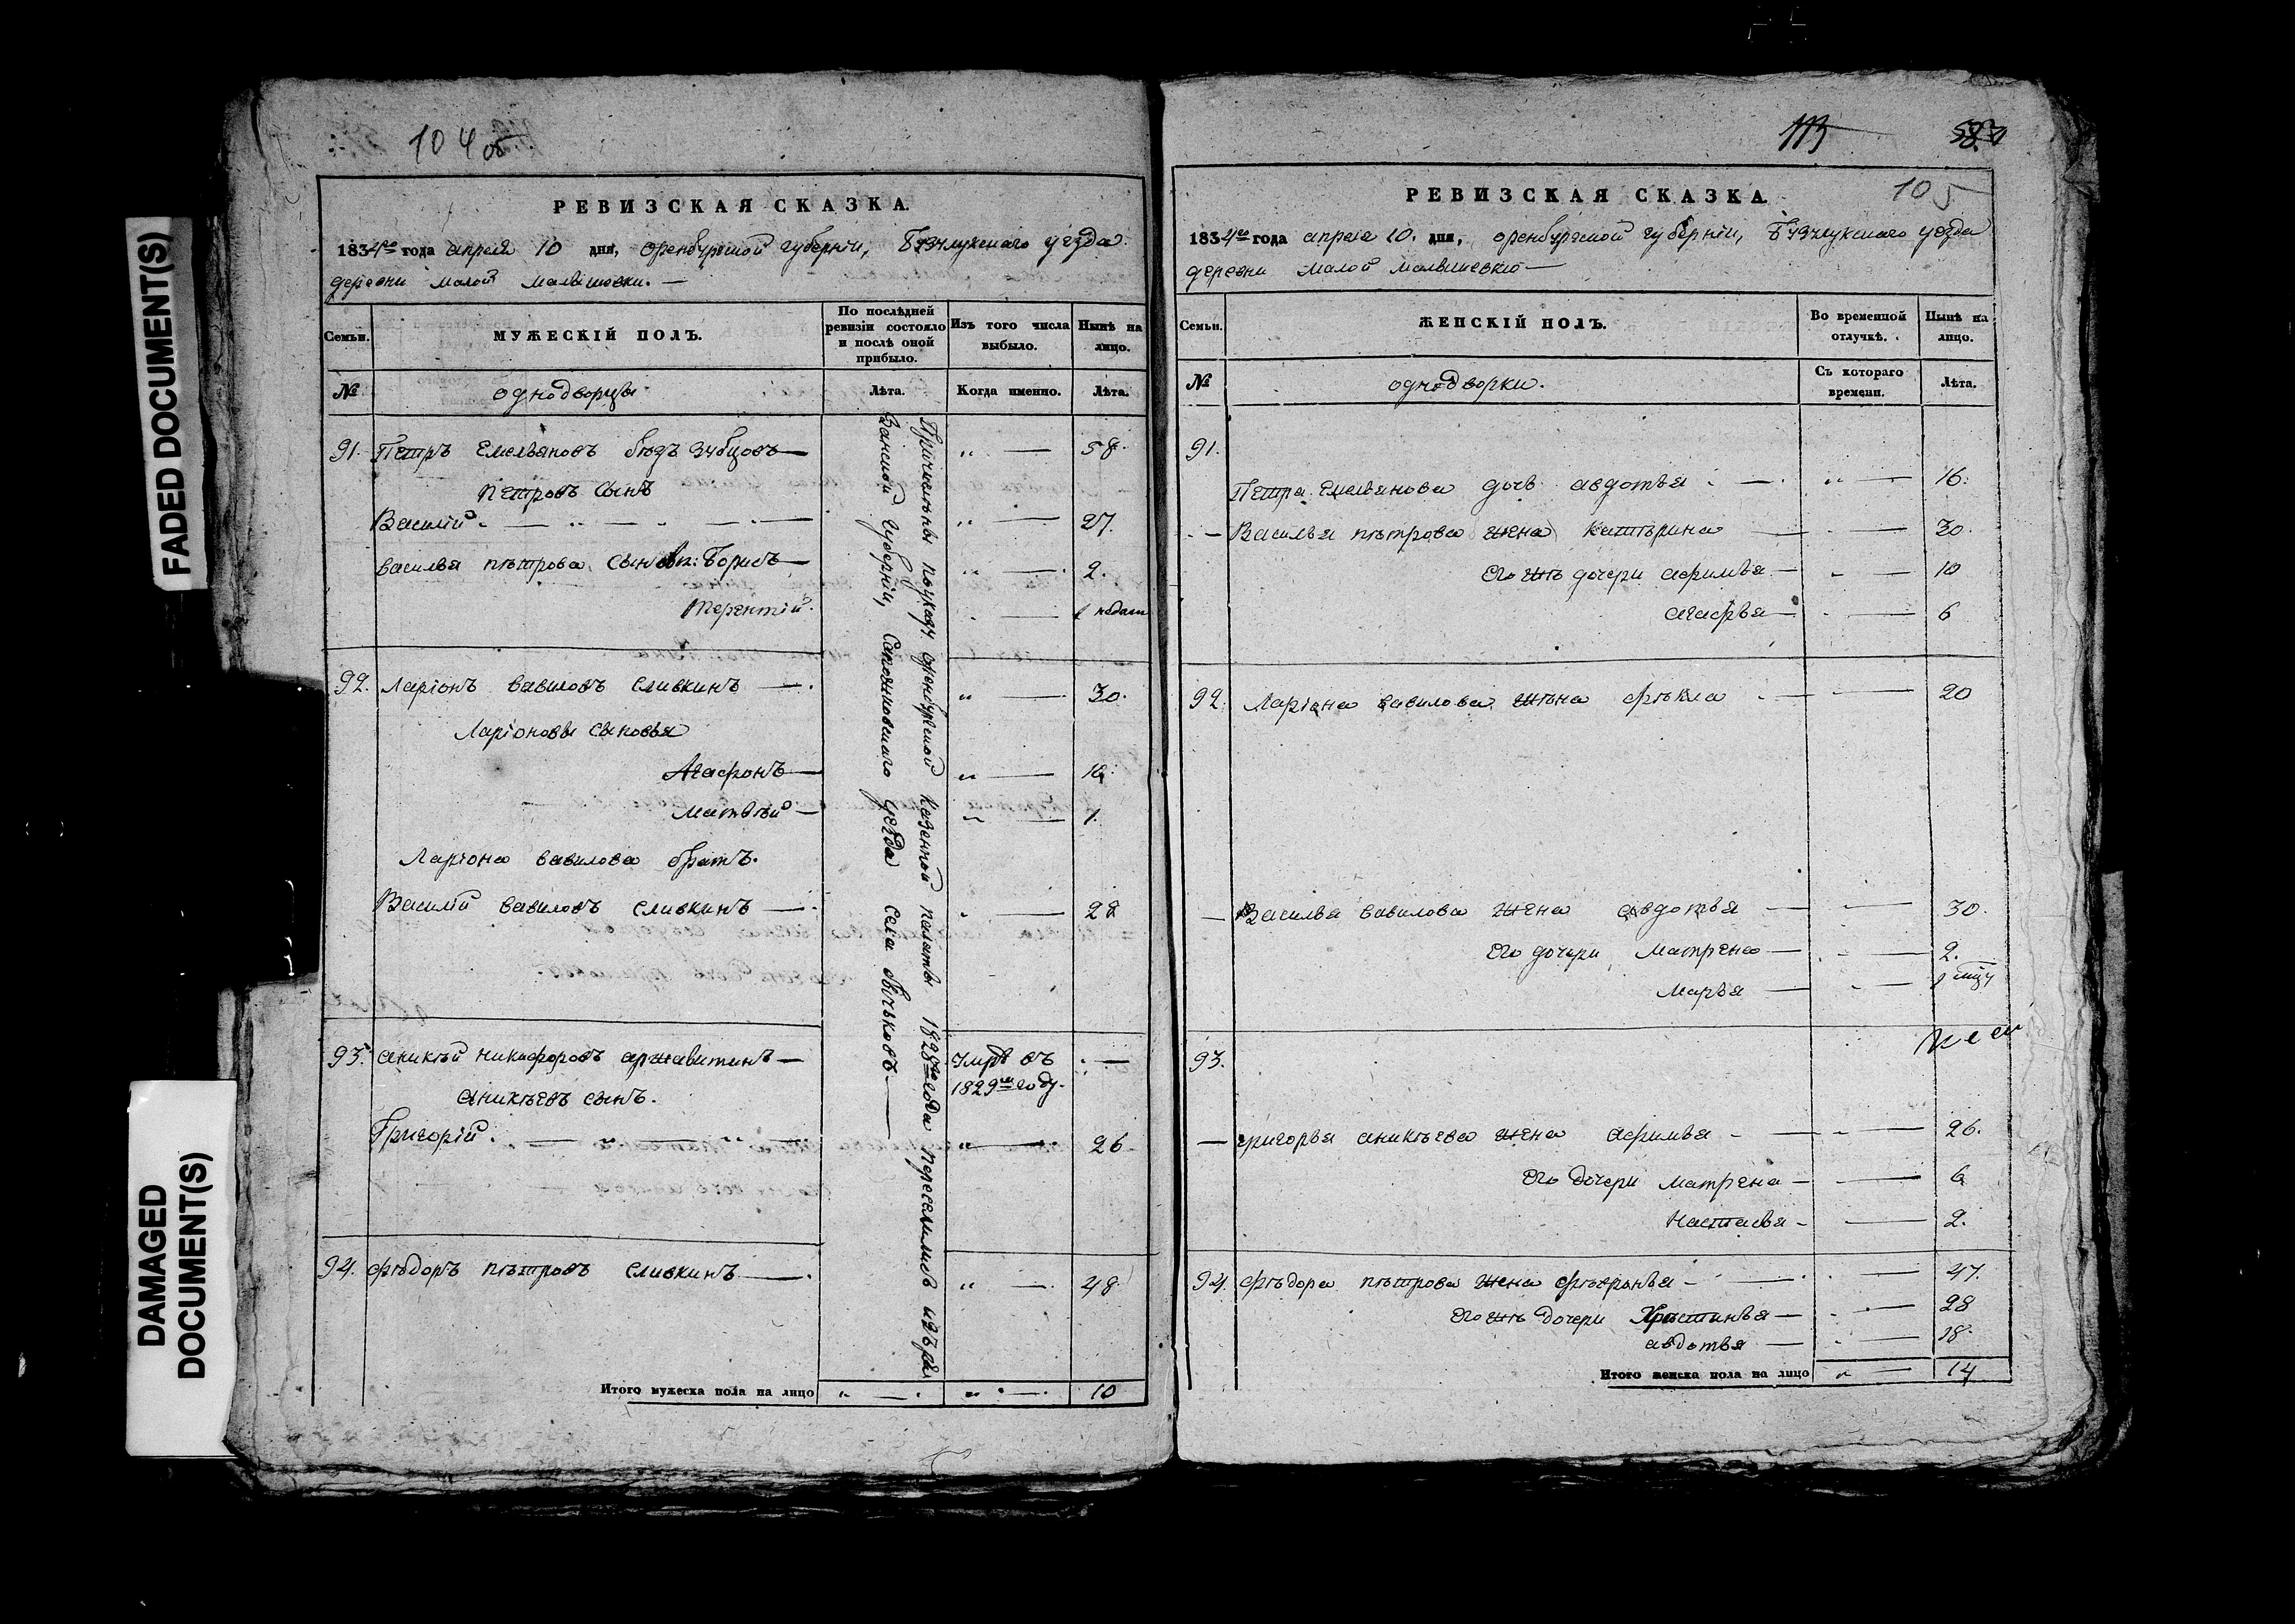 FADED DOCUMENT(S)
DAMAGED DOCUMENT(S)
104 об
РЕВИЗСКАЯ СКАЗКА.
1834го года апреля 10 дня, оренбургской губернiи, Бузулукскаго уезда
деревни малой малышовки. —
Семьи.
МУЖЕСКIЙ ПОЛЪ.
По послѣдней ревизiи состояло и послѣ оной прибыло.
Изъ того числа выбыло.
Нынѣ на лицо.
№
однодворцы
Лѣта.
Когда именно.
Лѣта.
91. Петръ Емельяновъ Зубцовъ — „ — 58.
Петровъ сынъ
Василiй — „ — 27.
василья петрова сыновья: Борисъ — „ — 2.
Терентiй. — 1 недели
92. Ларiонъ вавиловъ сливкинъ — „ — 30.
Ларiоновы сыновья
Агафонъ — „ — 10.
Матвѣй — „ — 1.
Ларiона вавилова братъ.
Василiй вавиловъ сливкинъ — „ — 28
93. аникѣй никифоровъ аржавитинъ — умре въ 1829м году.
аникѣевъ сынъ.
Григорiй. — „ — 26
94. Фѣдоръ пѣтровъ сливкинъ — „ — 48
Причислены поуказу оренбургской казенной палаты 1828го года переселились изъ ря
занской губернiи, сапожковскаго уезда села бычьковъ —
Итого мужеска пола на лицо „ — „ — 10
113
105
РЕВИЗСКАЯ СКАЗКА
1834го года апреля 10. дня, оренбургской губернiи, Бузулукскаго уезда
деревни малой малышевки —
Семьи.
ЖЕНСКIЙ ПОЛЪ.
Во временной отлучкѣ.
Нынѣ на лицо.
№
однодворки.
Съ котораго времени.
Лѣта.
91.
Петра Емельянова дочь авдотья — „ — 16.
— Василья пѣтрова жена катѣрина — 30.
его жъ дочери афимья — „ — 10
агафья — 6
92. Ларiона вавилова жѣна фѣкла — 20
— Василья вавилова жена авдотья — 30.
его дочери матрена — 2.
марья — 1 мцу
93.
— григорья аникѣева жена афимья — 26.
его дочери матрена — 6
Настасья — 2.
94. Фѣдора пѣтрова жена фѣвронья — 47.
его жъ дочери Христинья — 28
авдотья — 18.
Итого женска пола на лицо „ — 14